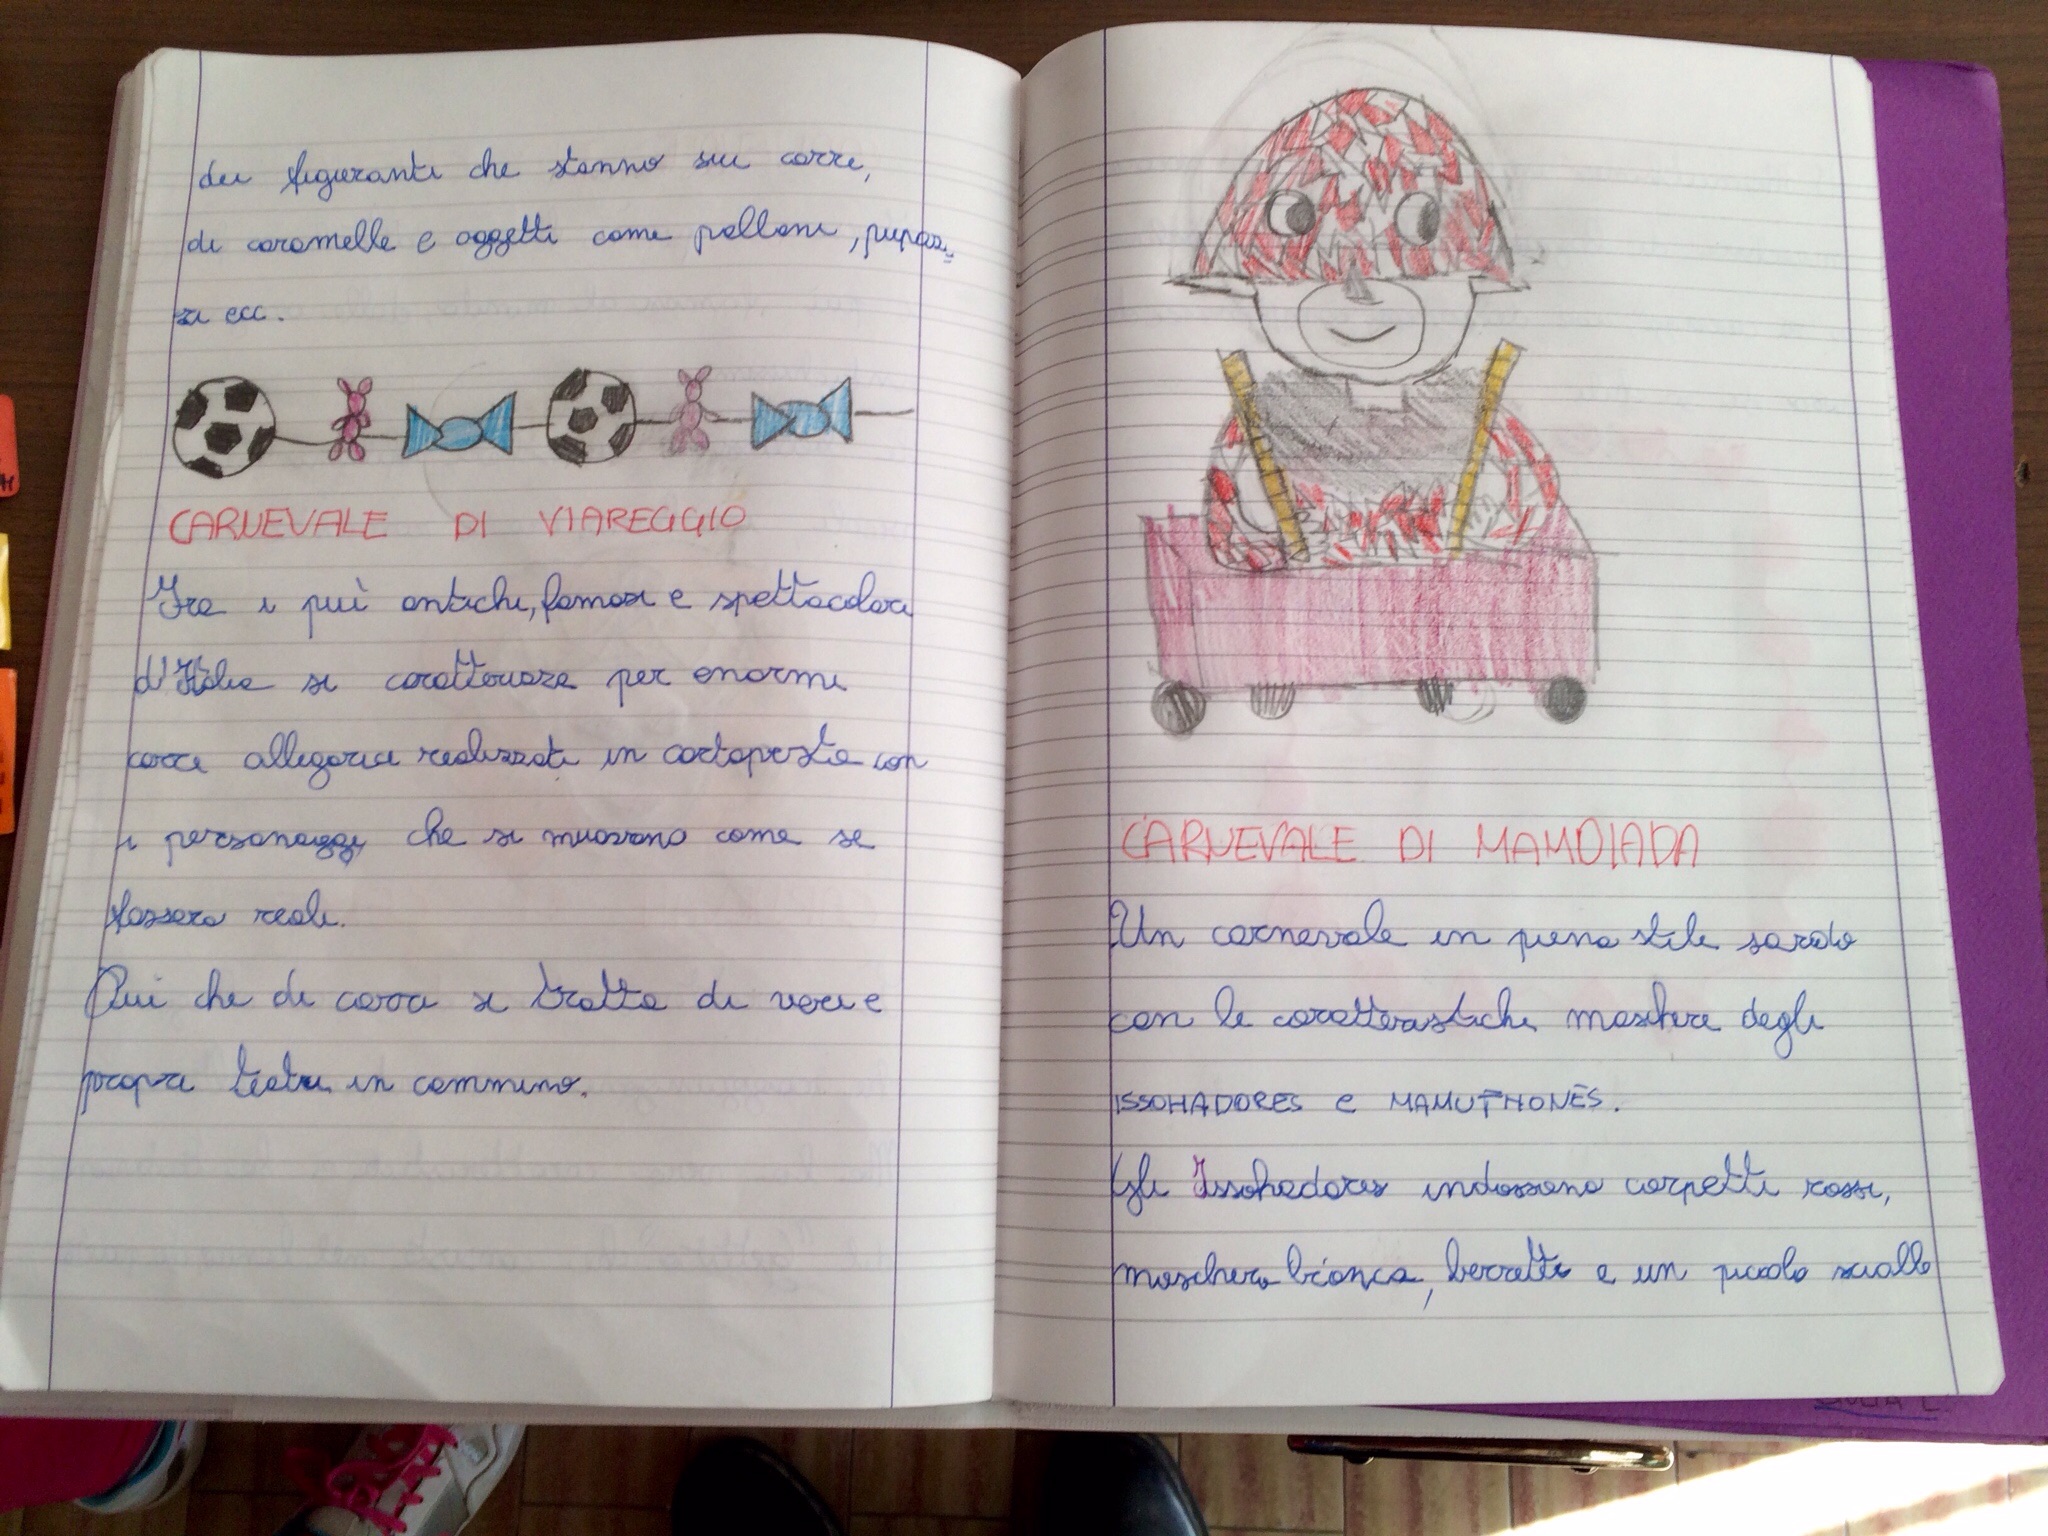 dei figuranti che stanno sui carri,
di caramelle e oggetti come palloni, pupaz=
zi ecc.
CARNEVALE DI VIAREGGIO
Tra i più antichi, famosi e spettacolari
d'Italia si caratterizza per enormi
carri allegorici realizzati in cartapesta con
i personaggi, che si muovono come se
fossero reali.
Qui che di carri si tratta di veri e
propri teatri in cammino.
CARNEVALE DI MAMOIADA
Un carnevale in pieno stile sardo
con le caratteristiche maschere degli
ISSOHADORES e MAMUTHONES.
Gli Issohadores indossano corpetti rossi,
maschera bianca, berretti e un piccolo scialle